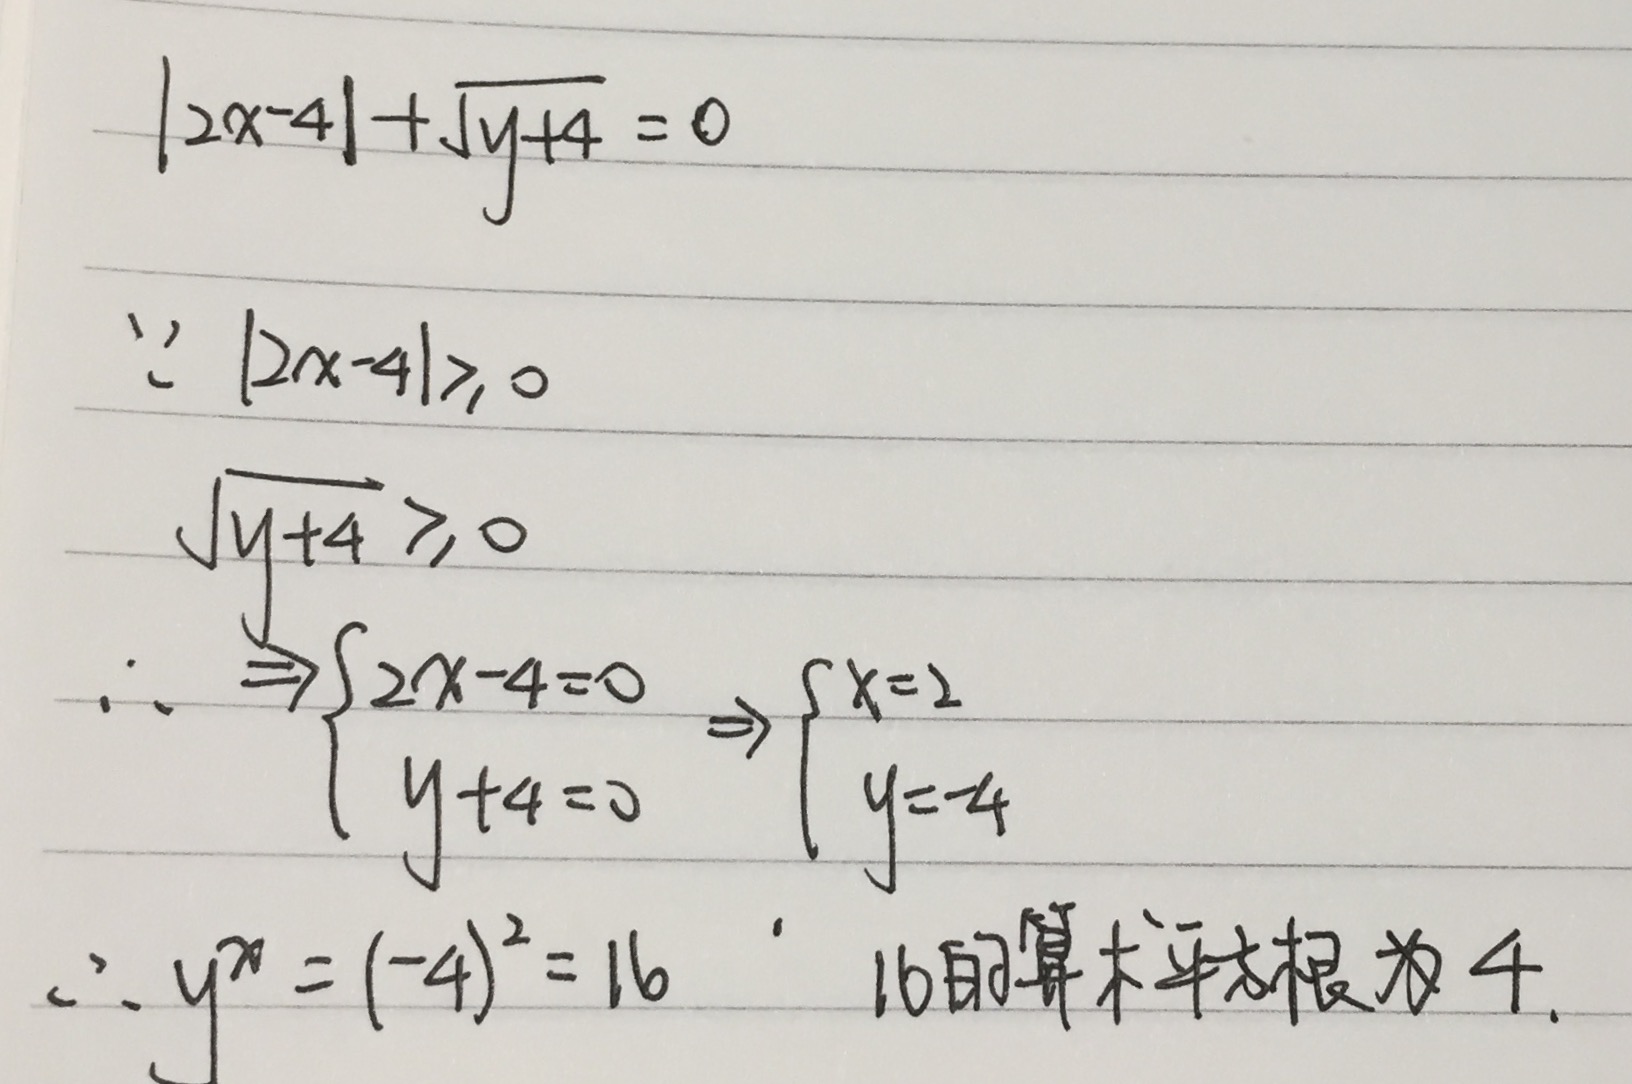 |2x-4|+√(y+4) = 0
∵ |2x-4|⩾0
√(y+4) ⩾0
∴ ⇒{2x-4=0 ⇒ {x=2
y+4=0 y=-4
∴ yˣ = (-4)² = 16 16的算术平方根为4.